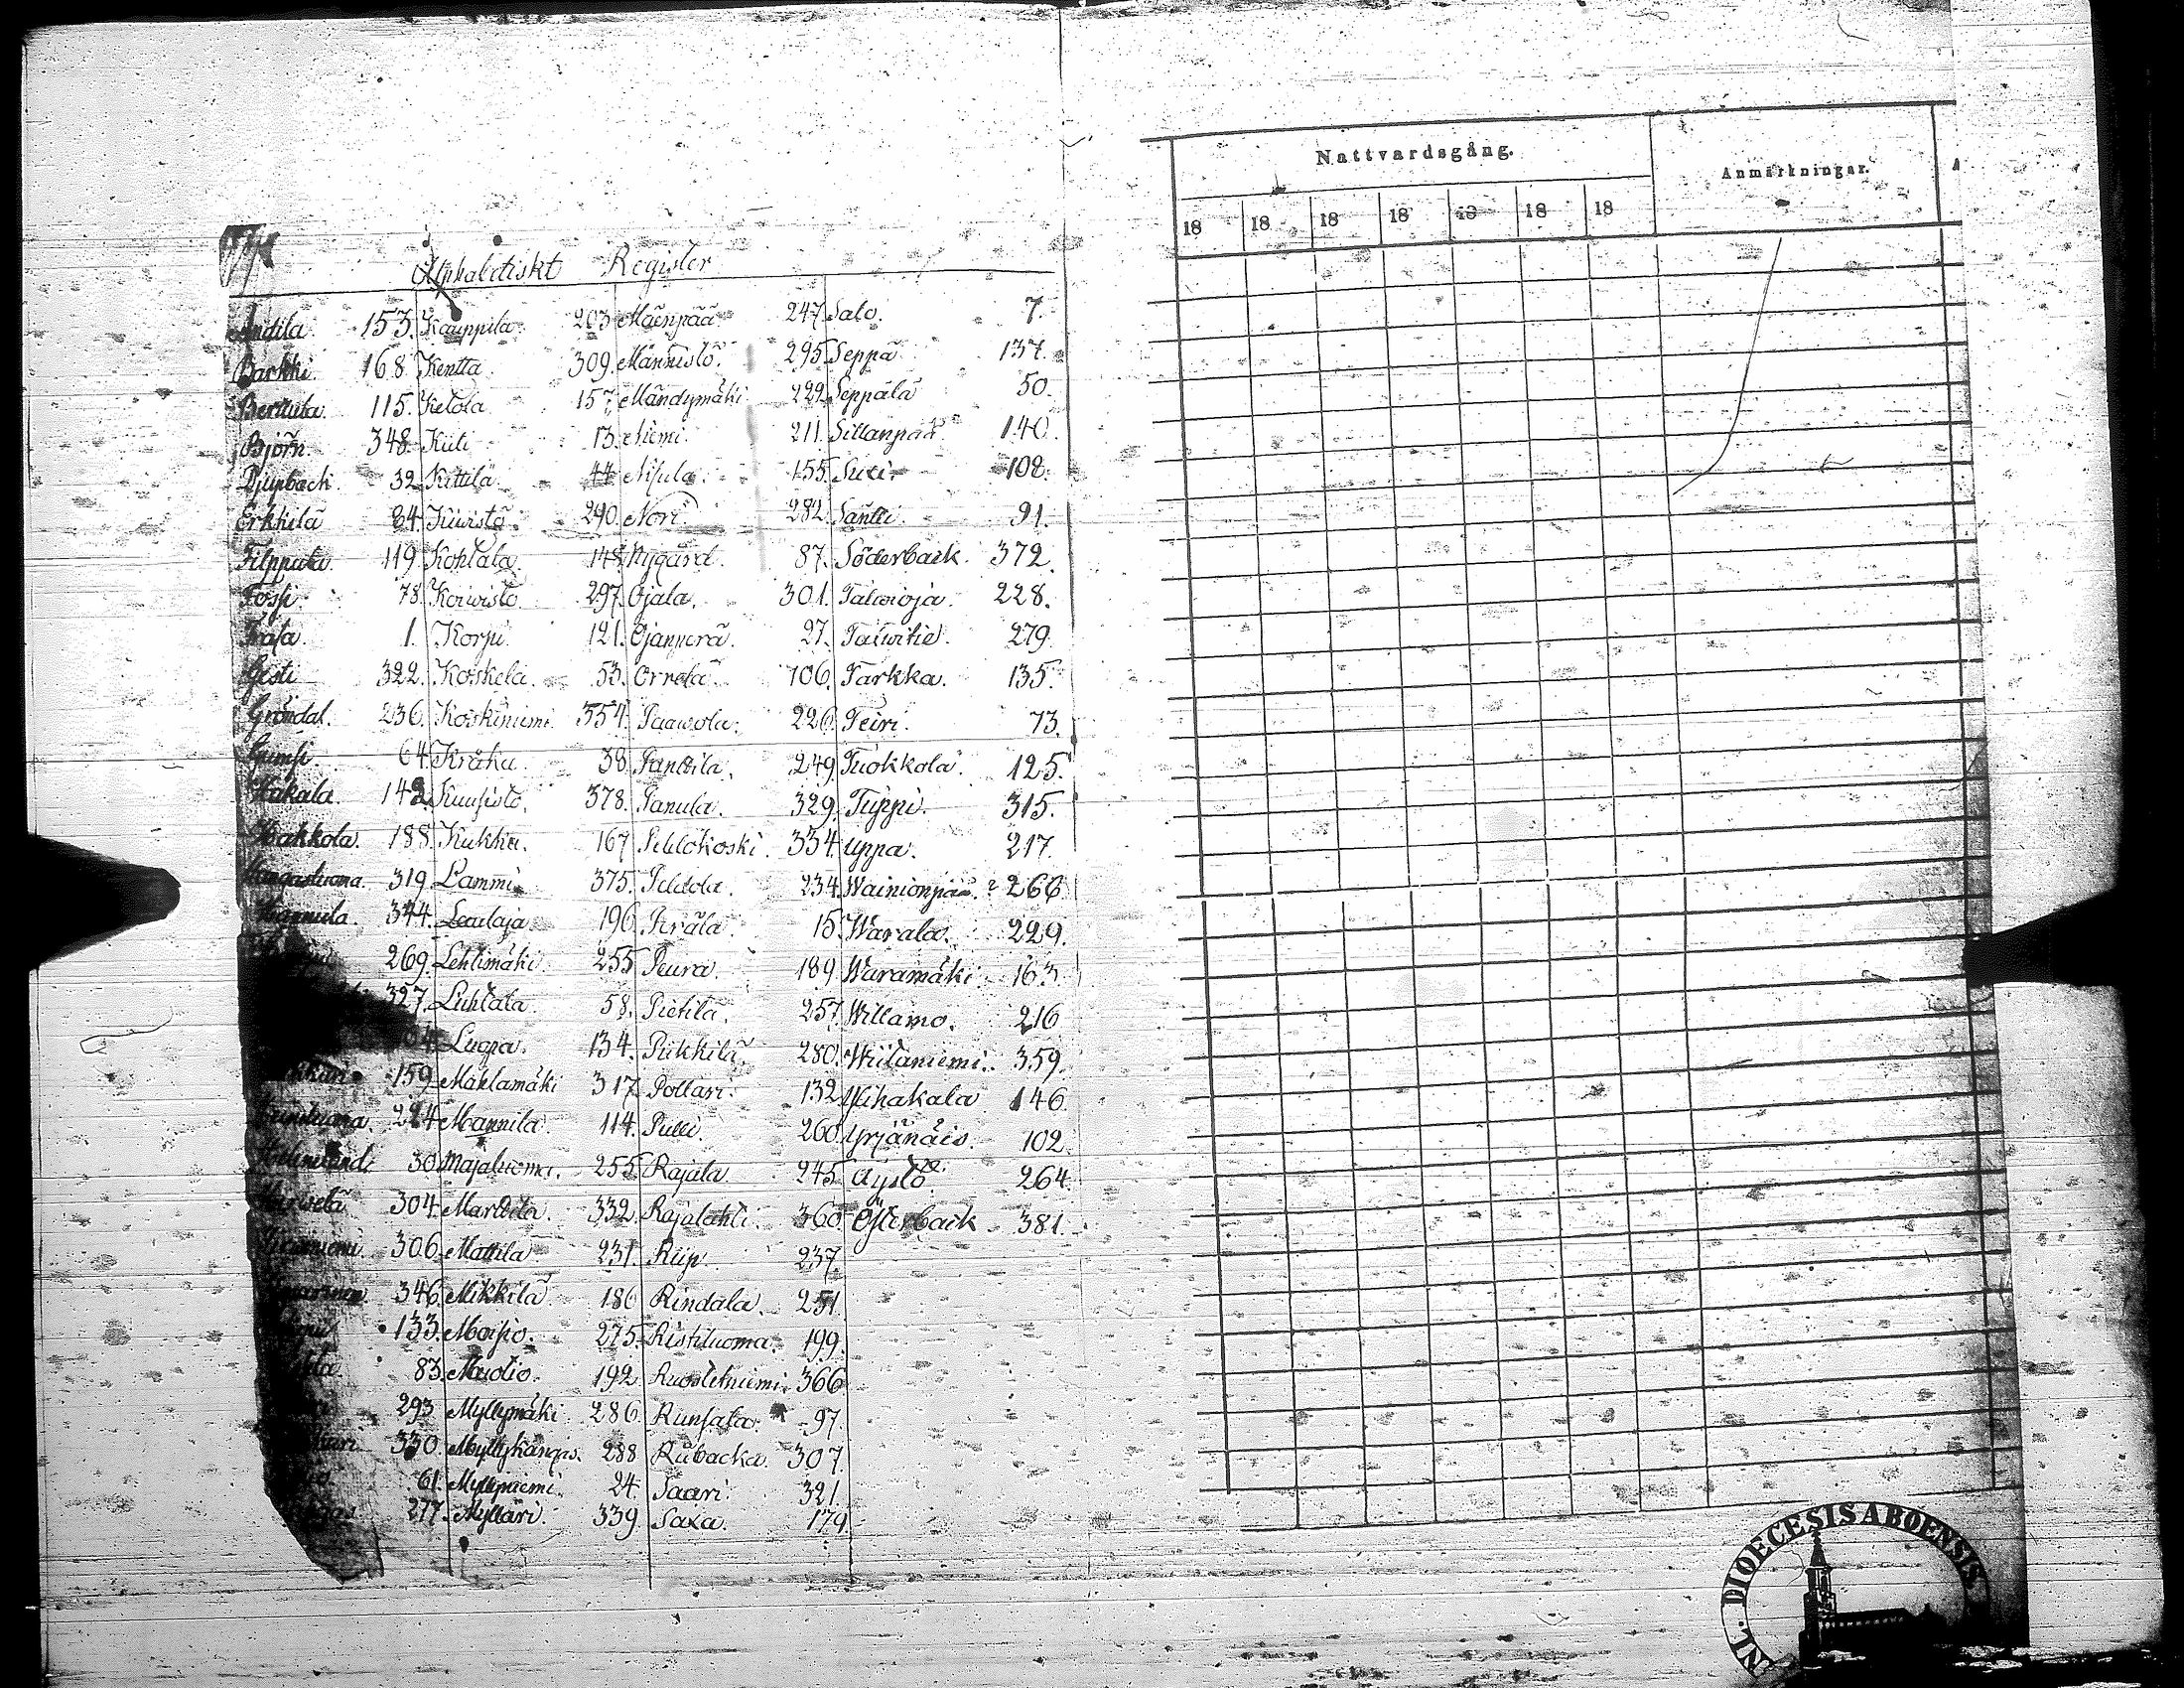 Alphabetiskt Register
Andila 153. Kauppila 203 Mäenpää 247 Salo. 7.
Barkki 168 Kentta 309 Männistö 295 Seppä 137.
Bertula 115. Ketola 157 Mändymäki 222 Seppälä 50.
Björn 348 Kiiti 13. Niemi 211. Sillanpää 140.
Djupback. 32 Kittilä 44 155 108.
Erkkilä 84 290 Nori 282. Säntti. 91.
Filppula 119 Kohtala 148 Nygård 87. Söderback. 372.
Fossi 78. Koivisto 297. Ojala. 301. Talvioja. 228.
1. Korpi 121. Ojanperä. 27. Talvitie. 279.
Gesti 322. Koskela. 53. Orrela 106. Tarkka. 135.
Gröndal. 236. Koskiniemi 354. Paavola. 226. Teiri. 73.
Gumsi 64. Krähu. 38. Panttila. 249. Tuokkola. 125.
Hakala. 142 Kuusisto. 378. Panula. 329. Tuppi. 315.
Hakkola. 188. Kukka. 167 Peldokoski. 334. Uppa. 217.
Hangasluoma. 319 Lammi 375. Peldola. 234. Wainionpää. 266
Hannula. 344. Laulaja 196. Perälä. 15. Warala. 229.
269. Lehtimäki 255 Peura. 189. Waramäki. 163.
327. Luhtala 58. Pietilä. 257. Willamo. 216
Luopa. 134. Pirkkilä. 280. Wiitaniemi. 359.
159 Mahlamäki 317. Pollari. 132 Wihakala 146.
224 Mannila. 114. Pulli. 260. Yrjänäis. 102.
30 Majaluoma. 255. Rajala. 245. Äystö 264.
304. Marttila. 332. Rajalahti. 360. Österback 381.
306. Mattila 231. Riip. 237.
346. Mikkilä 186 Rindala. 251.
133. Moisio. 275. Ristiluoma. 199.
83. Muotio. 192. Ruosteniemi 366
293 Myllymäki. 286. Runsala. 97.
330. Myllykangas. 288 Rubacka. 307.
61. Myllyniemi. 24. Saari. 321.
277. Mylläri. 339. Saxa. 179
Nattvardsgång. Anmärkningar.
18 18 18 18 18 18 18
NL. DIOECESIS ABOENSIS